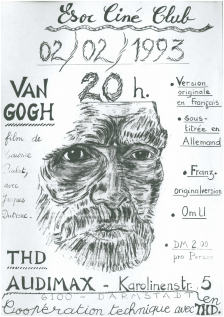 Esoc Ciné Club
02/02/1993
20 h.
VAN
GOGH
film de
Maurice
Pialat,
avec
Jacques
Dutronc.
• Version
originale
en Français
• sous-
titrée en
Allemand
• Franz.
originalversion
• OmU
• DM 2.00
pro Person
THD
AUDIMAX - Karolinenstr. 5
6100 - DARMSTADT
Coopération technique avec THD